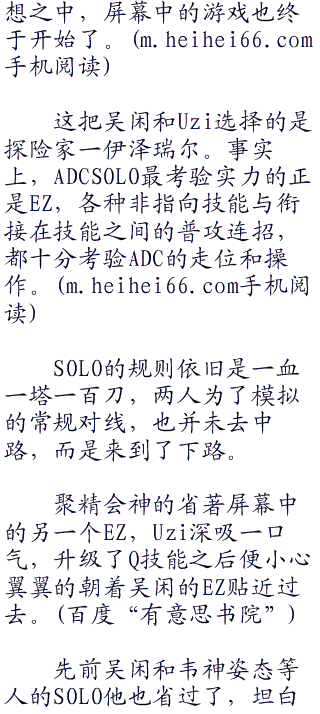 想之中，屏幕中的游戏也终
于开始了。(m.heihei66.com
手机阅读)
这把吴闲和Uzi选择的是
探险家一伊泽瑞尔。事实
上，ADCSOLO最考验实力的正
是EZ，各种非指向技能与衔
接在技能之间的普攻连招，
都十分考验ADC的走位和操
作。(m.heihei66.com手机阅
读)
SOLO的规则依旧是一血
一塔一百刀，两人为了模拟
的常规对线，也并未去中
路，而是来到了下路。
聚精会神的省著屏幕中
的另一个EZ，Uzi深吸一口
气，升级了Q技能之后便小心
翼翼的朝着吴闲的EZ贴近过
去。(百度“有意思书院”)
先前吴闲和韦神姿态等
人的SOLO他也省过了，坦白